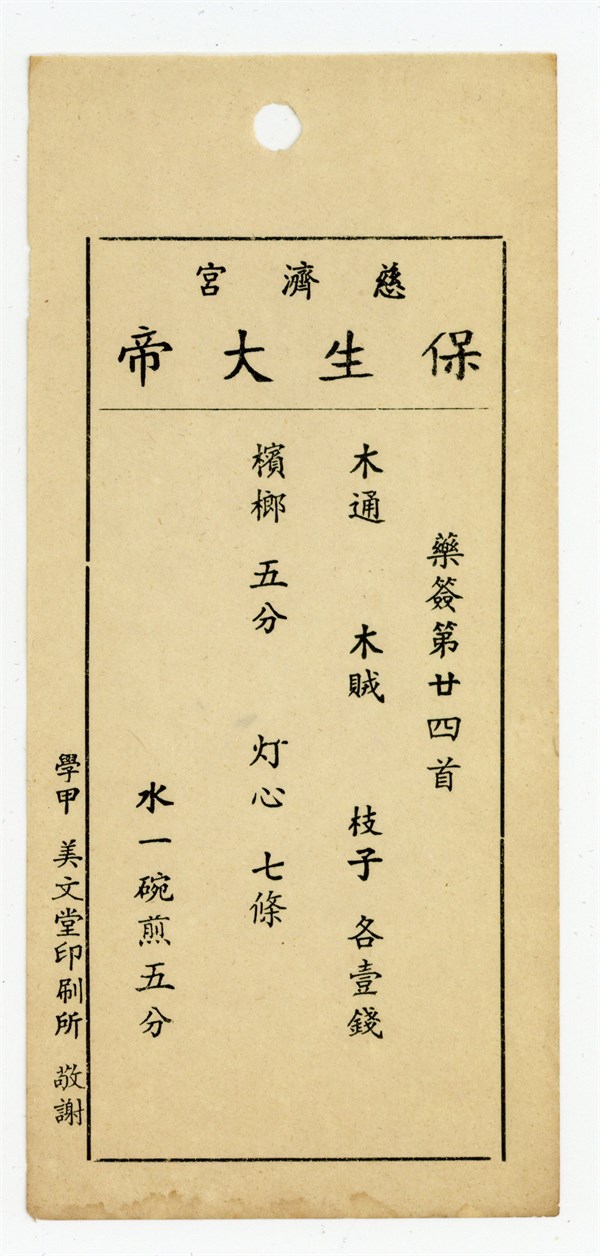 慈濟宮
保生大帝
藥簽第廿四首
木通 木賊 枝子 各壹錢
檳榔 五分 灯心 七條
水一碗煎五分
學甲 美文堂印刷所 敬謝